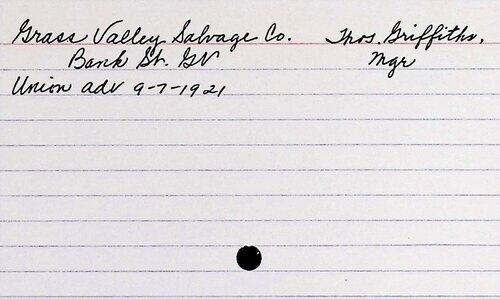 Grass Valley Salvage Co. Thos. Griffiths,
Bank St. GV Mgr
Union adv 9-7-1921